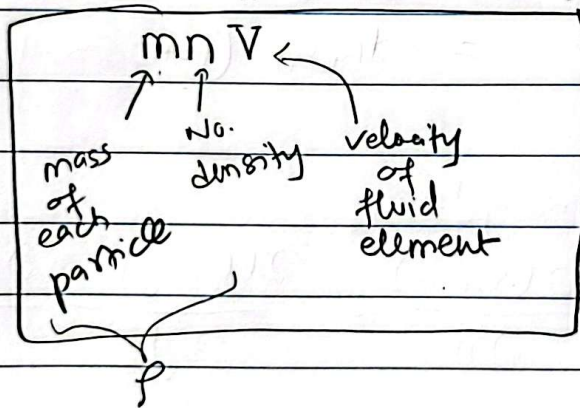 m n V
mass of each particle
No. density
velocity of fluid element
ρ